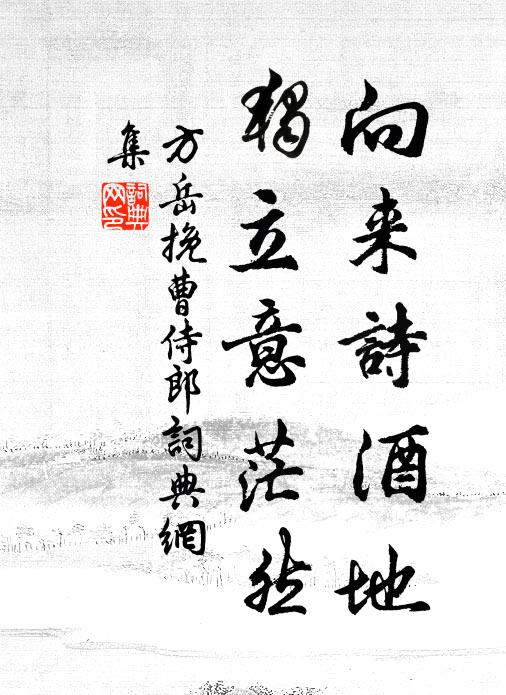 向来詩酒地
獨立意茫然
方岳挽曹侍郎詞典網
集
詞典
网印